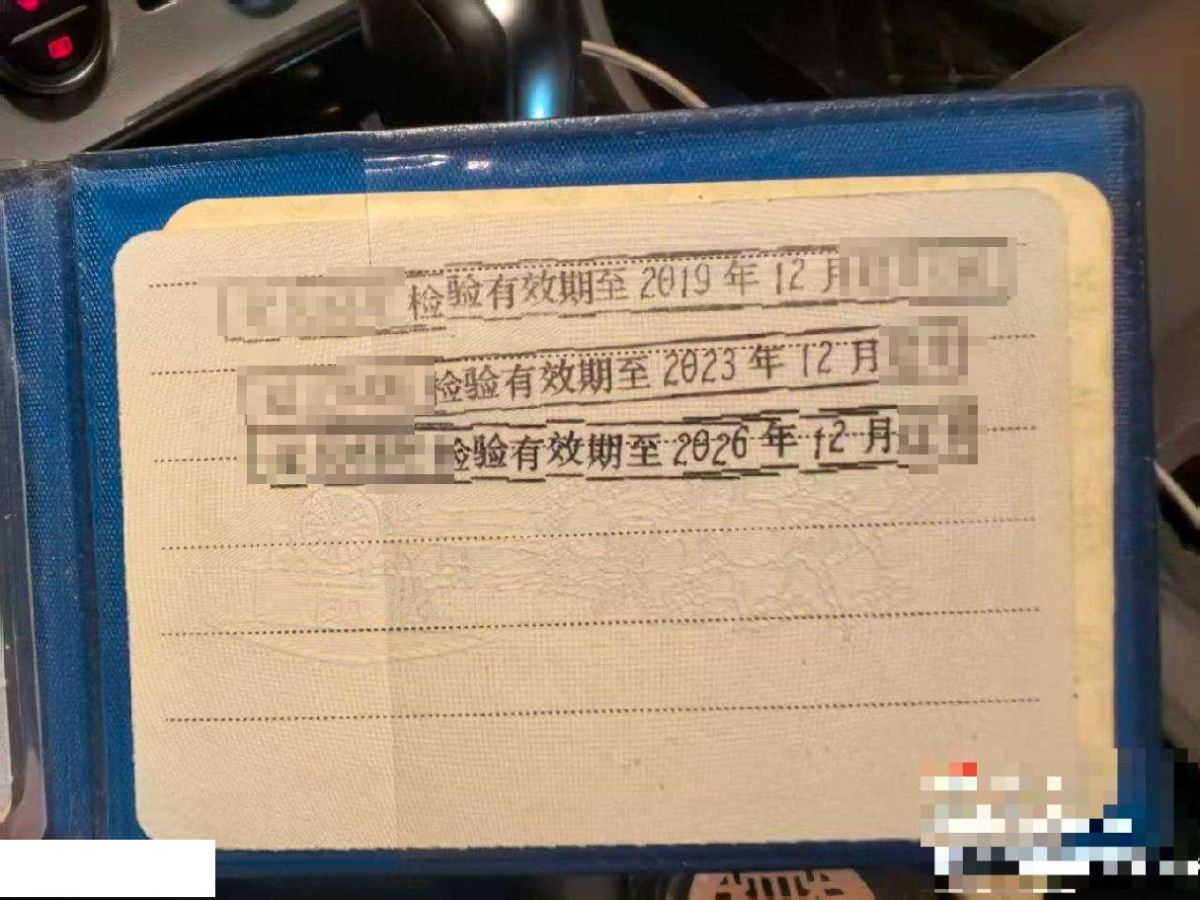 检验有效期至2019年12月
检验有效期至2023年12月
检验有效期至2026年12月